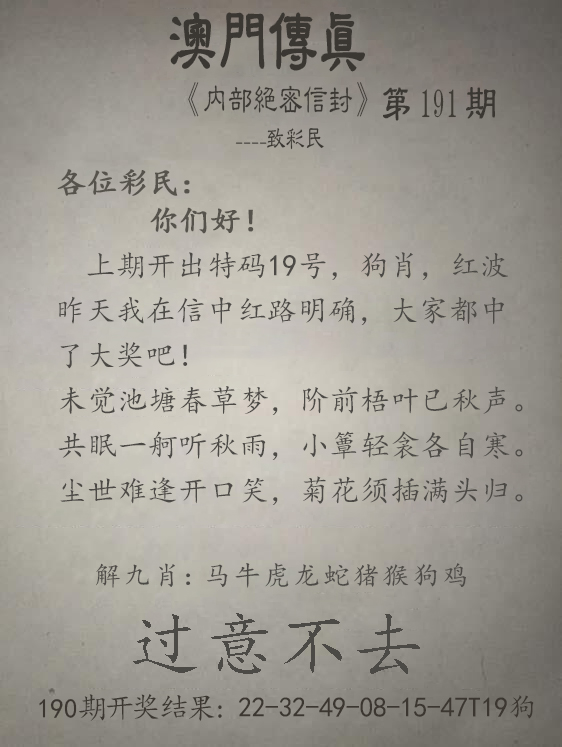 澳門傳眞
《内部絕密信封》第191期
----致彩民
各位彩民：
你们好！
上期开出特码19号，狗肖，红波
昨天我在信中红路明确，大家都中
了大奖吧！
未觉池塘春草梦，阶前梧叶已秋声。
共眠一舸听秋雨，小簟轻衾各自寒。
尘世难逢开口笑，菊花须插满头归。
解九肖：马牛虎龙蛇猪猴狗鸡
过意不去
190期开奖结果：22-32-49-08-15-47T19狗